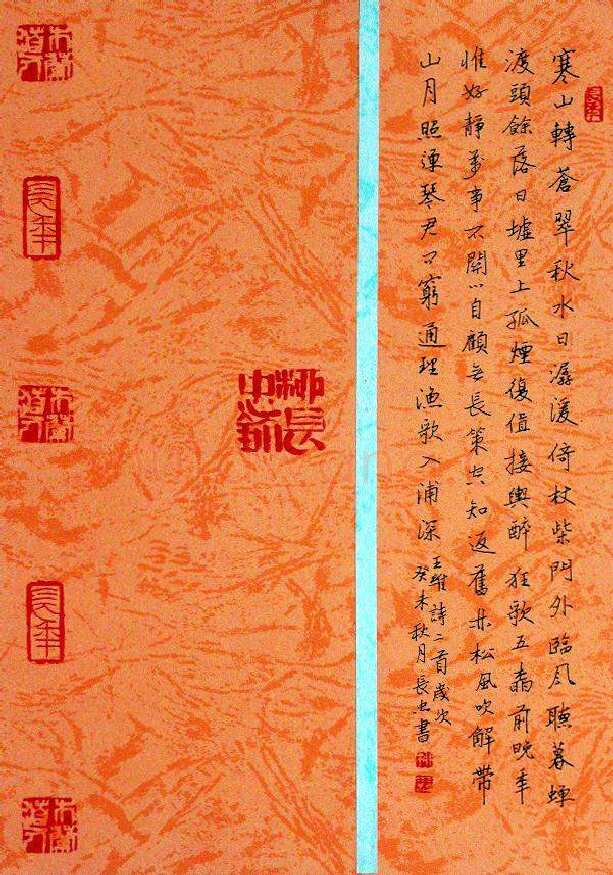 寒山轉蒼翠秋水日潺湲倚杖柴門外臨風聽暮蟬
渡頭餘落日墟里上孤煙復值接輿醉狂歌五柳前晚年
惟好靜萬事不關心自顧無長策空知返舊林松風吹解帶
山月照彈琴君問窮通理漁歌入浦深
王維詩二首歲次
癸未秋月長忠書